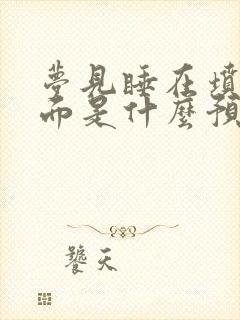 夢見睡在墳
而是什麼預
饕天